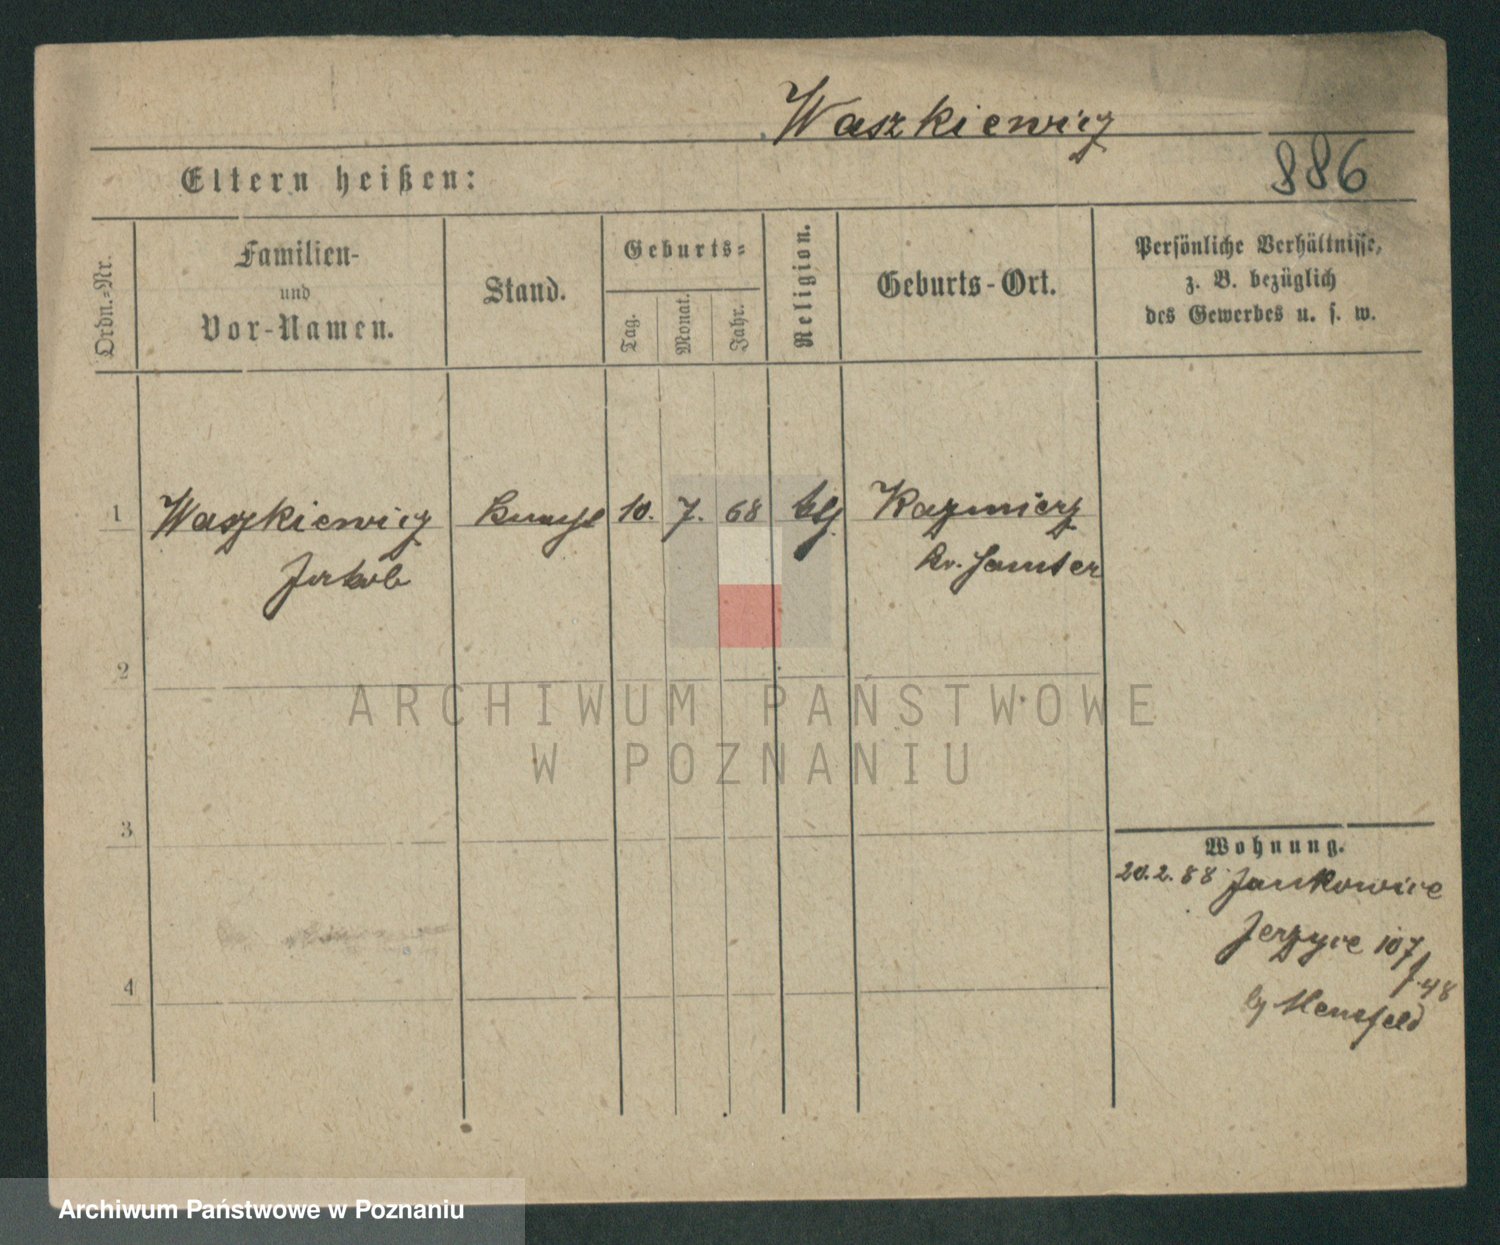 Waszkiewicz
886
Eltern heißen:
Ordn.-Nr.
Familien-
und
Vor-Namen.
Stand.
Geburts-
Tag.
Monat.
Jahr.
Religion.
Geburts-Ort.
Persönliche Verhältnisse,
z. B. bezüglich
des Gewerbes u. s. w.
1 Waszkiewicz 10. 7. 68 Kazmierz
Jakob Kr. Samter
2
ARCHIWUM PAŃSTWOWE
W POZNANIU
3
Wohnung.
20.2.88 Jankowice
Jerzyce 107
4
48
Archiwum Państwowe w Poznaniu